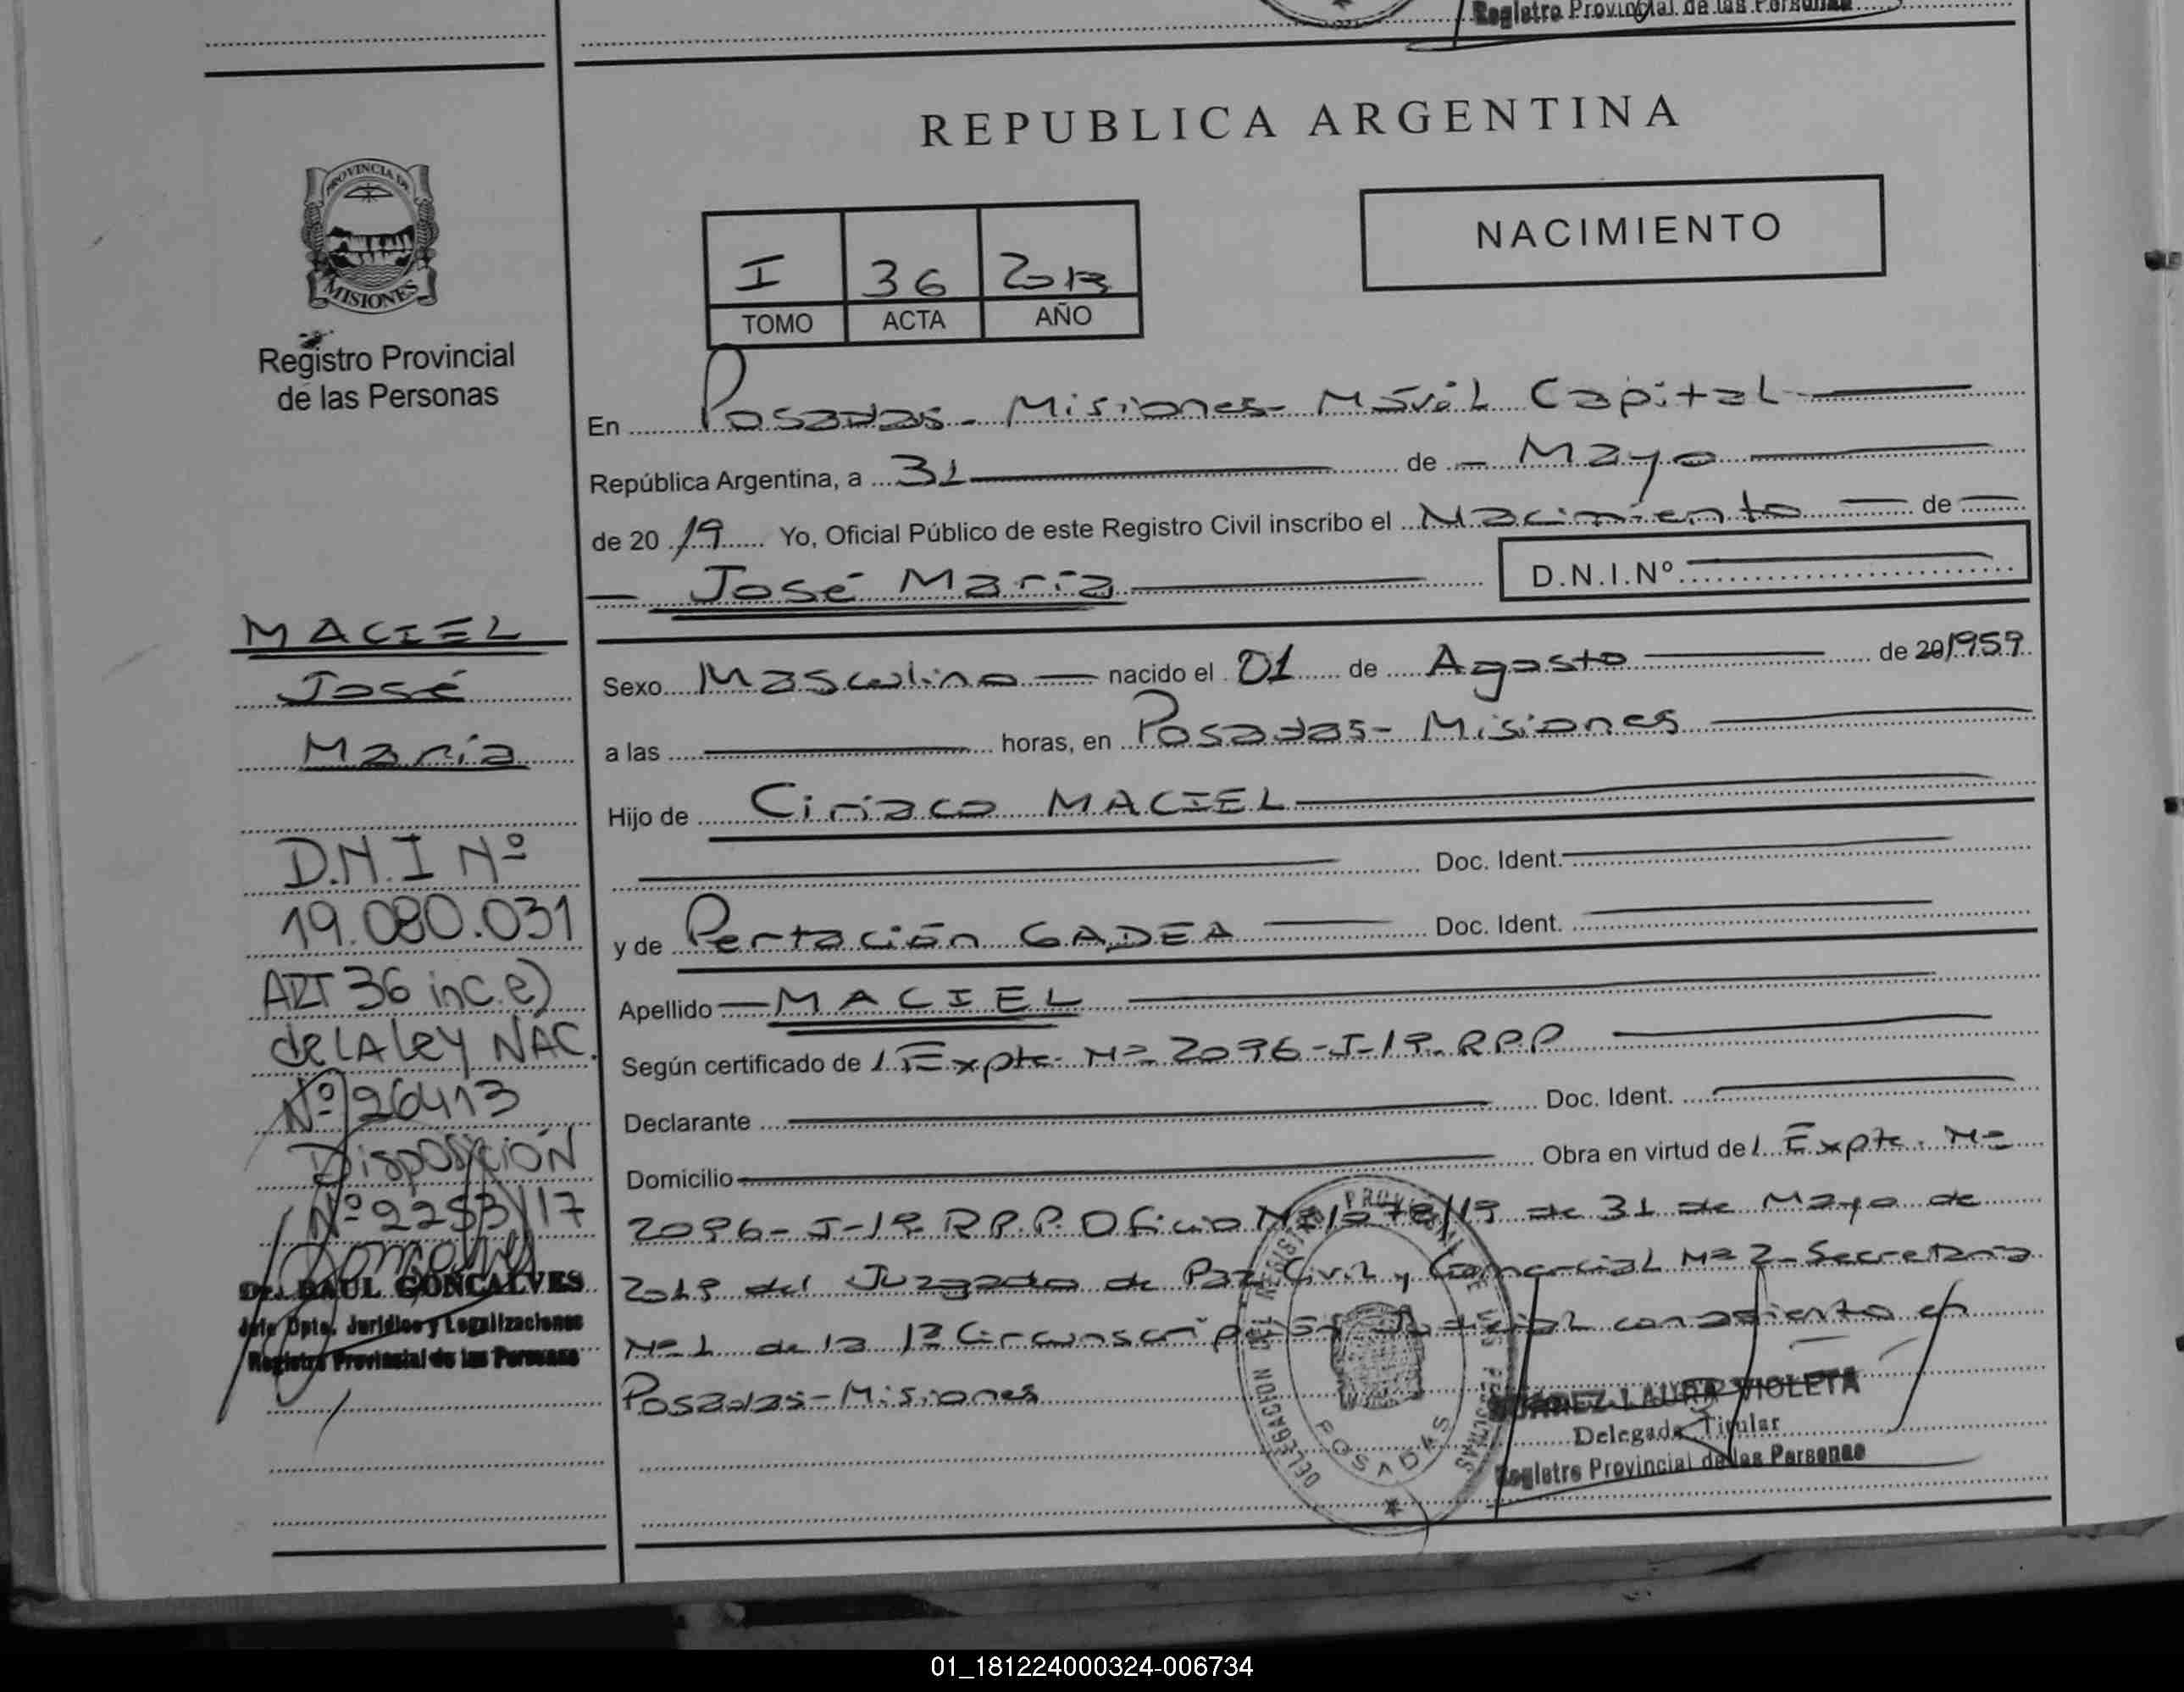 Registro Provincial de las Personas
REPUBLICA ARGENTINA
PROVINCIA DE
MISIONES
Registro Provincial
de las Personas
NACIMIENTO
I 36
TOMO ACTA AÑO
En Posadas - Misiones - Móvil Capital
República Argentina, a 31 de Mayo
de 20 19 Yo, Oficial Público de este Registro Civil inscribo el Nacimiento de
José María D.N.I.Nº
MACIEL
José
María
D.N.I Nº
19.080.031
ART 36 inc. e)
de LA Ley NAC.
Nº 26413
Disposición
Nº 2253/17
Dr. RAUL GONCALVES
Jefe Dpto. Jurídico y Legalizaciones
Registro Provincial de las Personas
Sexo Masculino nacido el 01 de Agosto de 20 1959
a las horas, en Posadas - Misiones
Hijo de Ciriaco MACIEL
Doc. Ident.
y de Pertación GADEA Doc. Ident.
Apellido MACIEL
Según certificado de l Expte. Nº 2096-J-19. RPP
Declarante Doc. Ident.
Domicilio Obra en virtud de l Expte. Nº
2096-J-19 R.P.P. Oficio Nº 1078/19 de 31 de Mayo de
2019 del Juzgado de Paz Civil y Comercial Nº 2 - Secretaria
Nº 1 de la 1ª Circunscripción Judicial con asiento en
Posadas - Misiones
DELEGACION
POSADAS
SUAREZ LAURA VIOLETA
Delegada Titular
Registro Provincial de las Personas
01_181224000324-006734